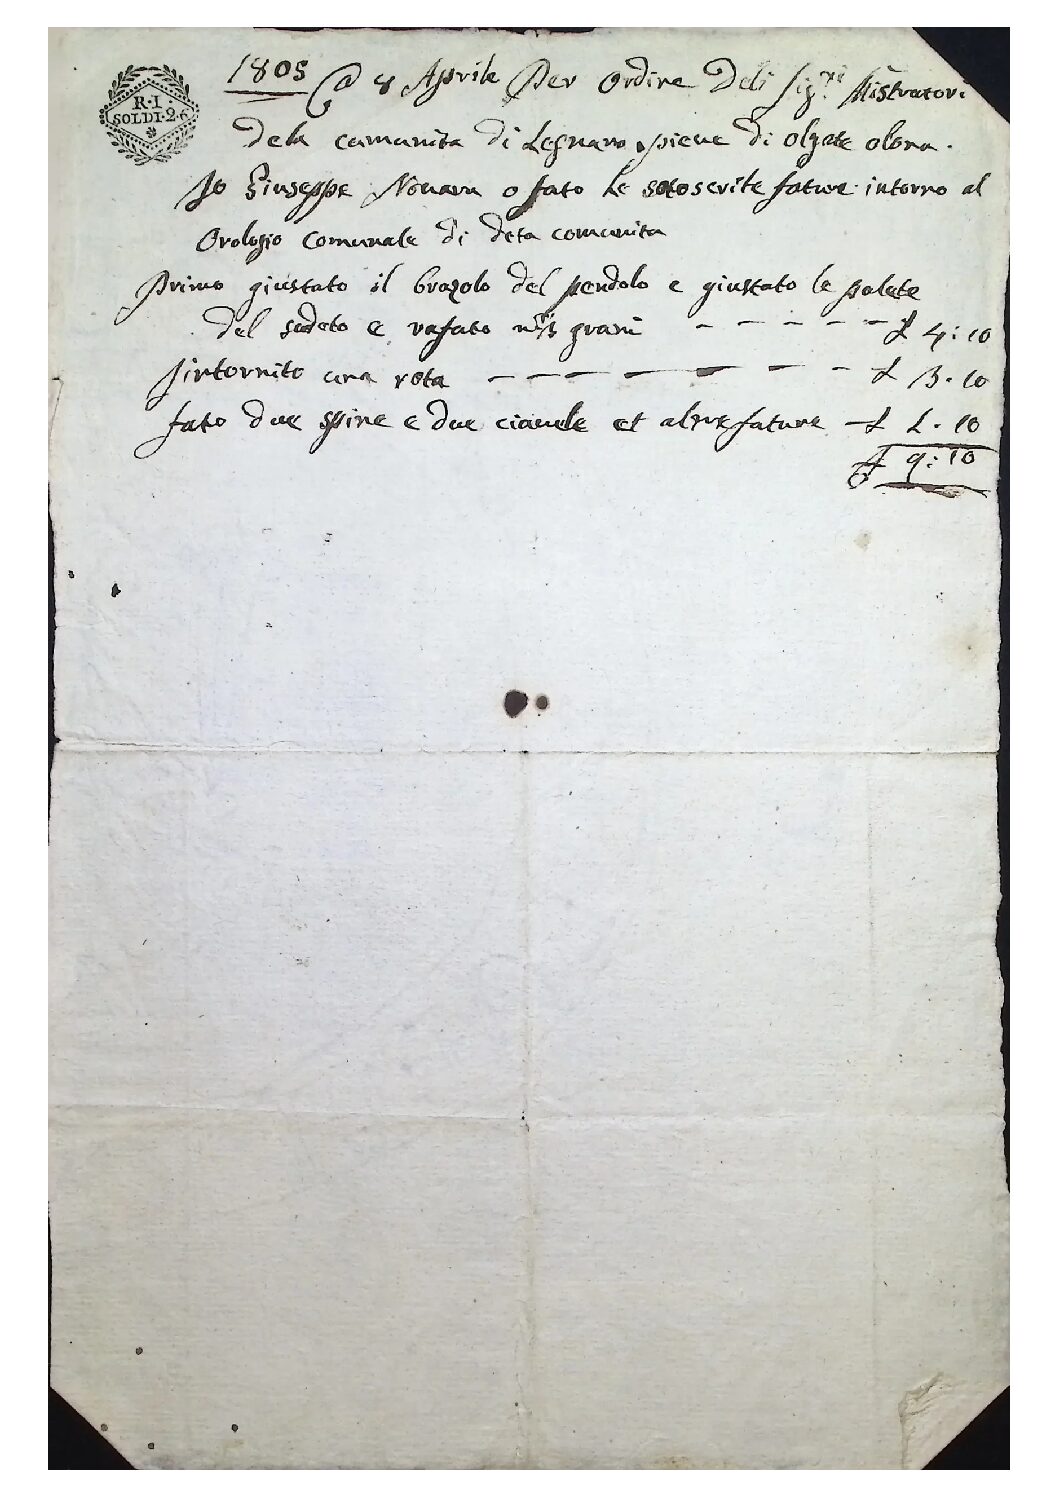 R·I·
SOLDI·2·6
1805 @ 8 Aprile Per ordine Deli Sig.ri Mistratori
dela comunita di Legnano pieve di olgate olona.
Io Giuseppe Novara o fato le sotoscrite fature intorno al
Orologio comunale di deta comunita
Primo giustato il brazolo del pendolo e giustato le palete
del sudeto e rafato grani £ 4:10
intornito una rota £ 3·10
fato due spine e due ciavele et altre fature £ 1·10
£ 9:10